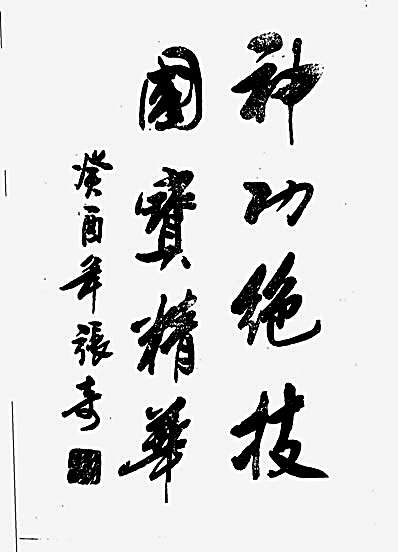 神功绝技
國寶精華
癸酉年 張奇